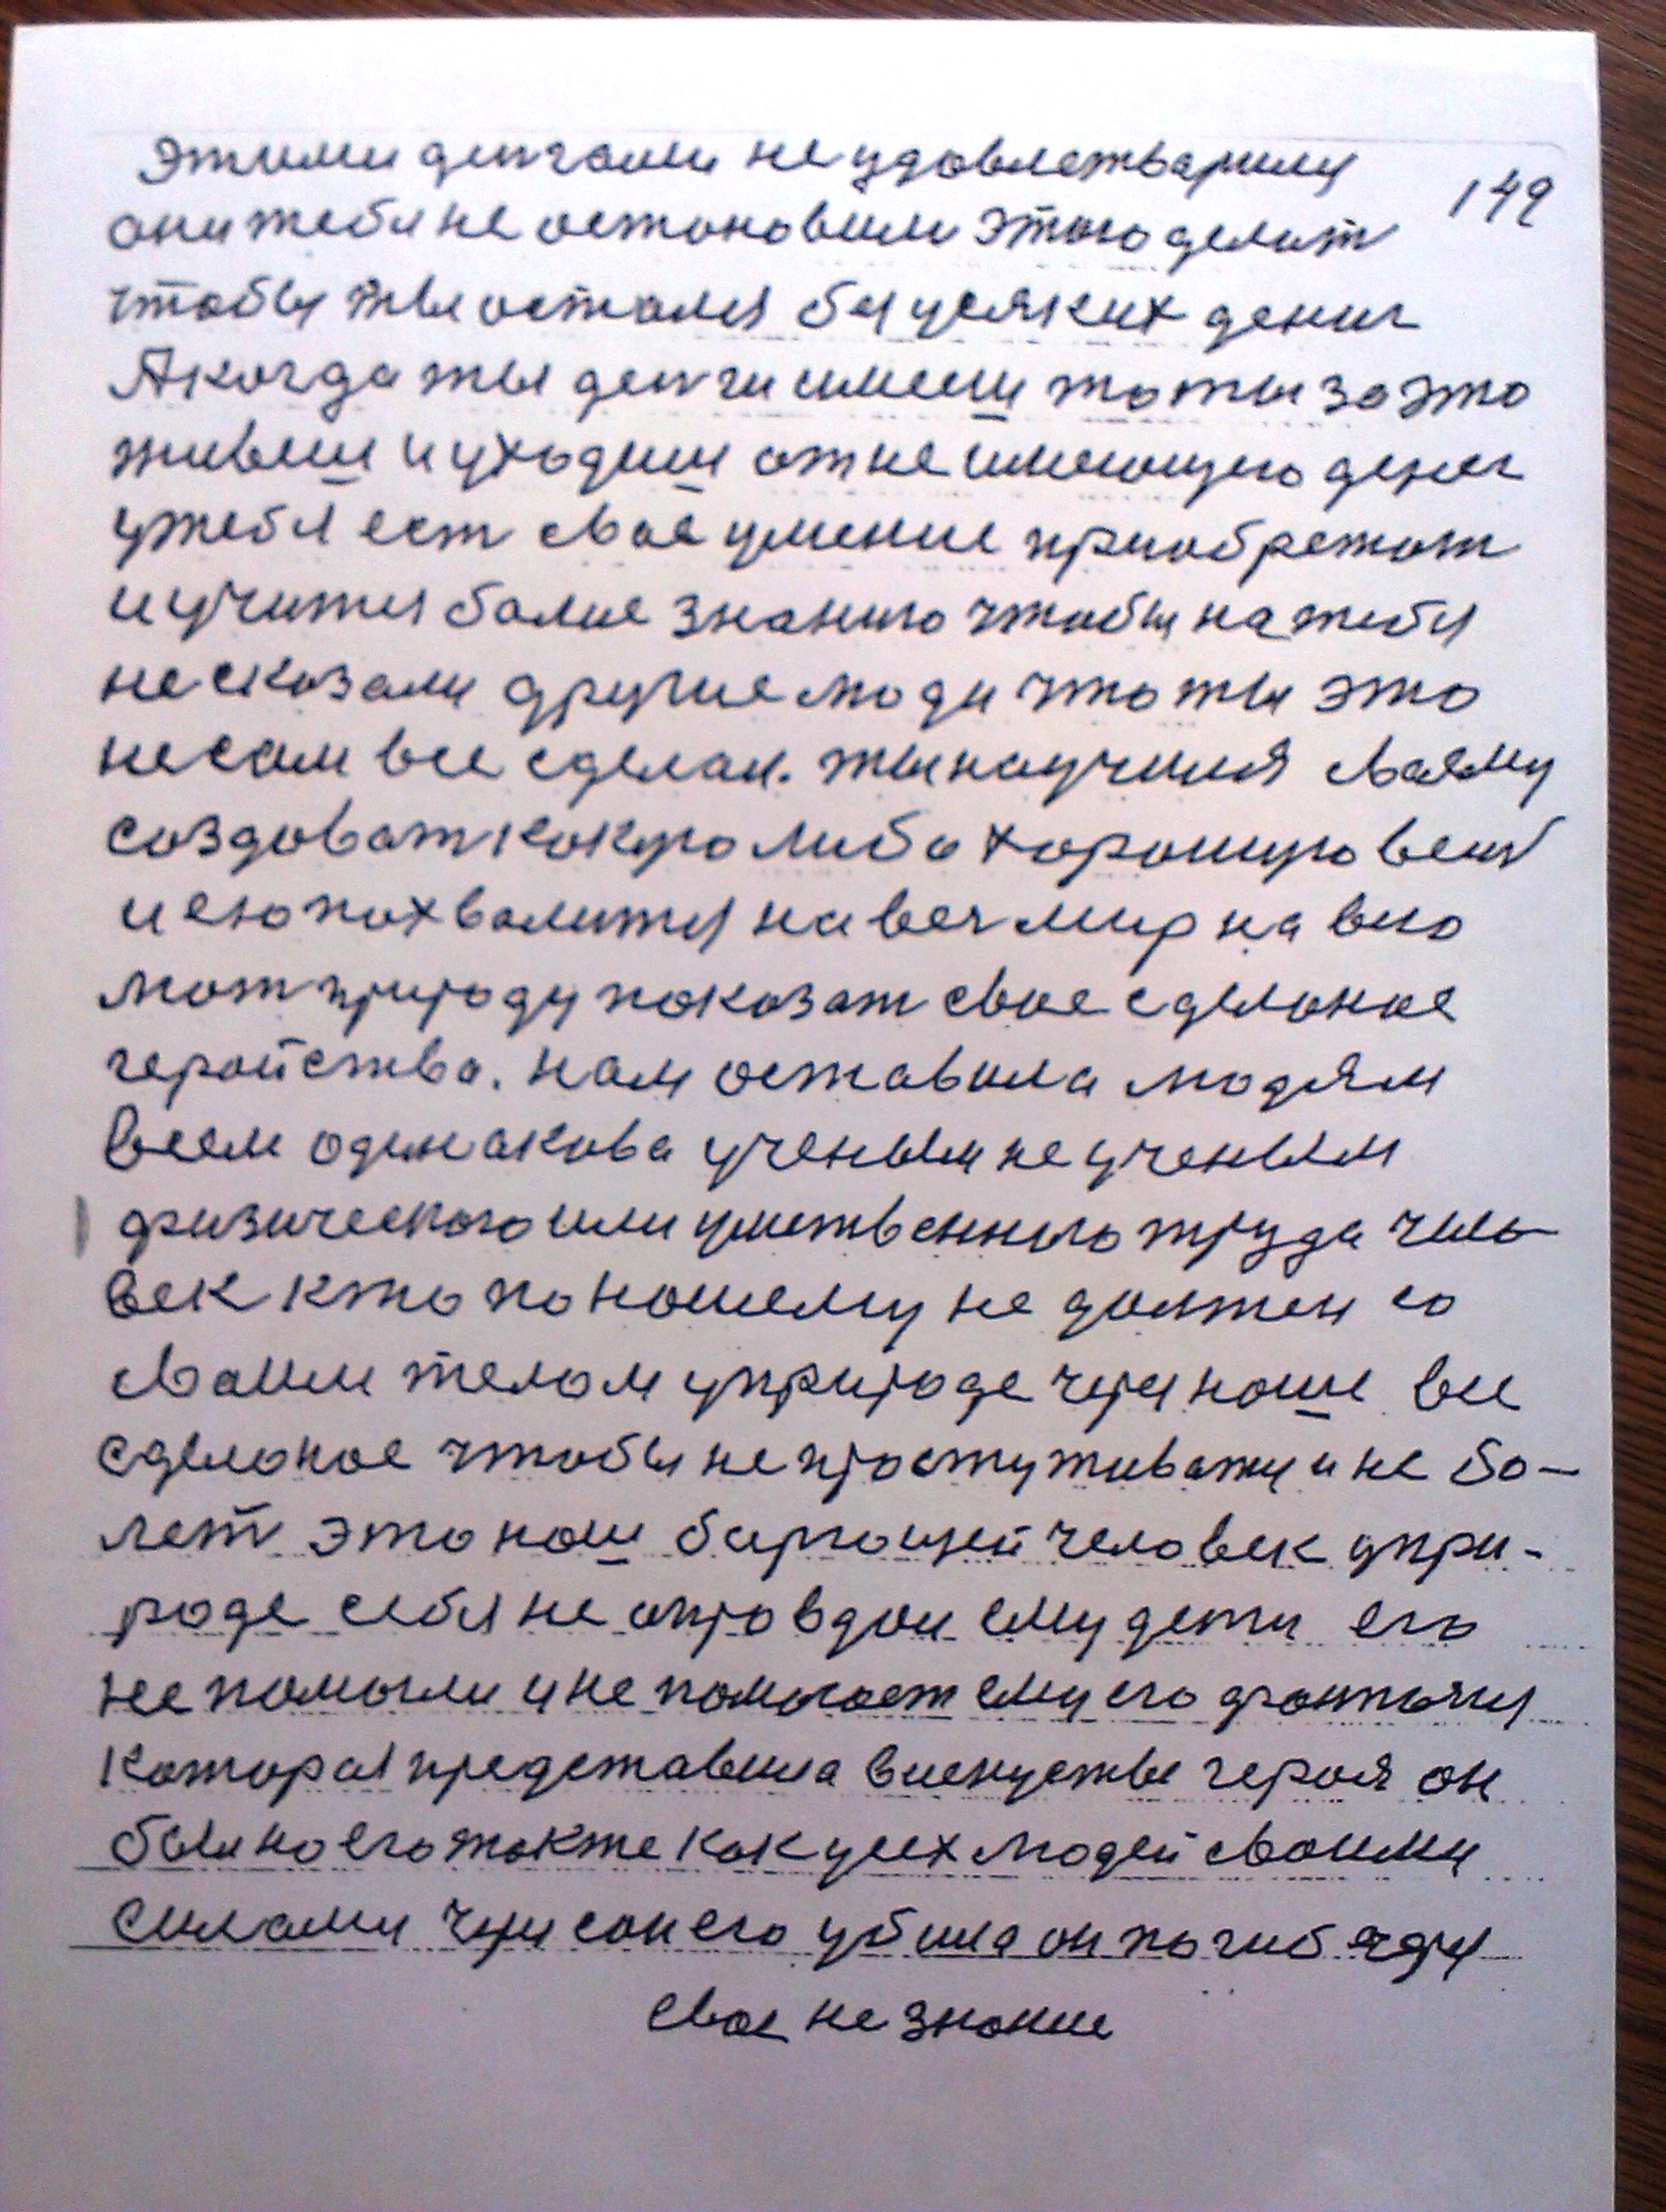 этими деньгами не удовлетварили
149
они тебя не остоновили этого делат
чтобы ты остался без усяких дениг
А когда ты деньги имееш то ты за это
живеш и уходиш от не имеющего денег
у тебя ест свое умение приобретат
и учится болие знанию чтобы на тебя
не сказали другие люди что ты это
не сам все сделал. ты научился своему
создоват какую либо хорошую вещ
и ею похвалится на вес мир на всю
мат природу показат свое сделоное
геройства. нам оставила людям
всем одинакова ученым не ученым
физического или умственного труда чило
век кто по нашему не должен со
своим телом у природе через наше все
сделоное чтобы не простуживатц и не бо-
лет это наш бырющей человек у при-
роде себя не оправдал ему дети его
не помогли и не помогает ему его фантазия
которая представила в искустве героя он
был но его также как усех людей своими
силами через сон его убила он погиб через
свое не знание